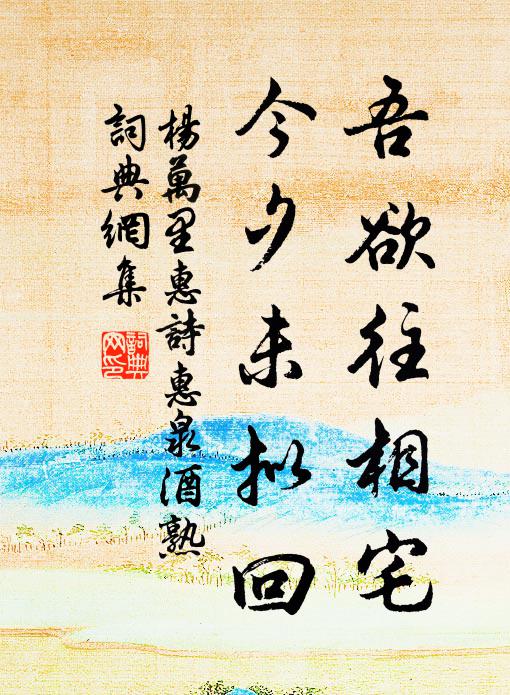 吾欲往相宅
今夕未拟回
楊萬里惠詩惠泉酒熟
詞典網集
詞典
网印